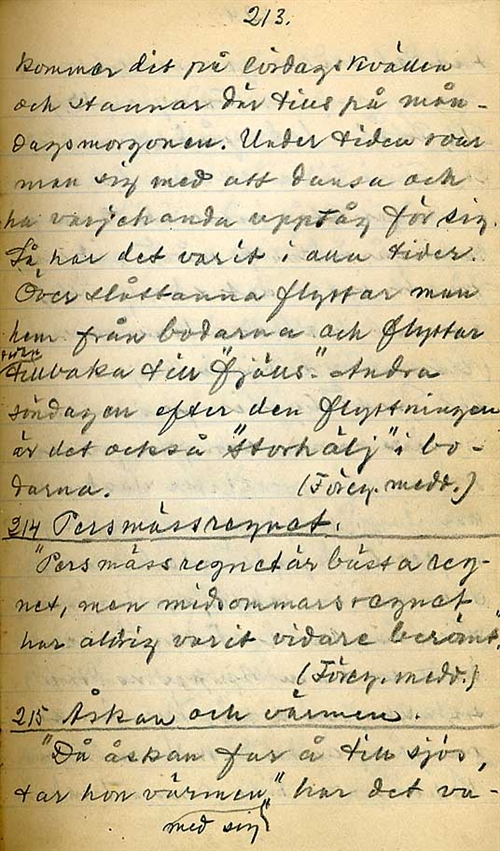 213.
kommer dit på lördagskvällen
och stannar där till på mån-
dagsmorgonen. Under tiden roar
man sig med att dansa och
ha varjehanda upptåg för sig.
Så har det varit i alla tider.
Över slåttanna flyttar man
hem från bodarna och flyttar
tillbaka till "fjöls". Andra
söndagen efter den flyttningen
är det också "storhälj" i bo-
darna. (Föreg. medd.)
214 Persmässregnet.
"Persmässregnet är bästa reg-
net, men midsommarsregnet
har aldrig varit vidare berömt".
(Föreg. medd.)
215 Åskan och värmen.
"Då åskan far å till sjös,
tar hon värmen" har det va-
med sig